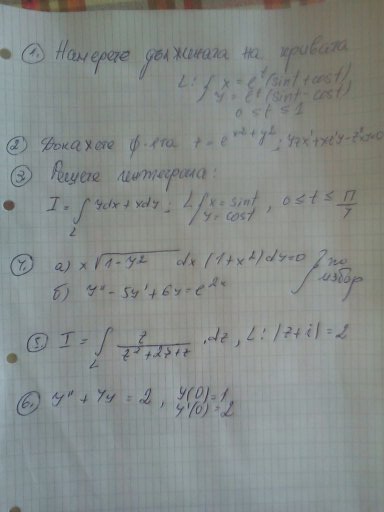 1. Намерете дължината на кривата
L: { x = e^t (sint + cost)
y = e^t (sint - cost)
0 ≤ t ≤ 1
2) Докажете ф-ята z = e^{x²+y²} ;
3. Решете интеграла:
I = ∫_L ydx + xdy ; L { x = sint
y = cost , 0 ≤ t ≤ П/4
4. а) x√(1-y²) dx (1+x²) dy = 0
б) y'' - 5y' + 6y = e^{2x} } по избор
5. I = ∫_L z / (z² + 2z + z) . dz , L: |z+i| = 2
6. y'' + 4y = 2 , y(0) = 1
y'(0) = 2